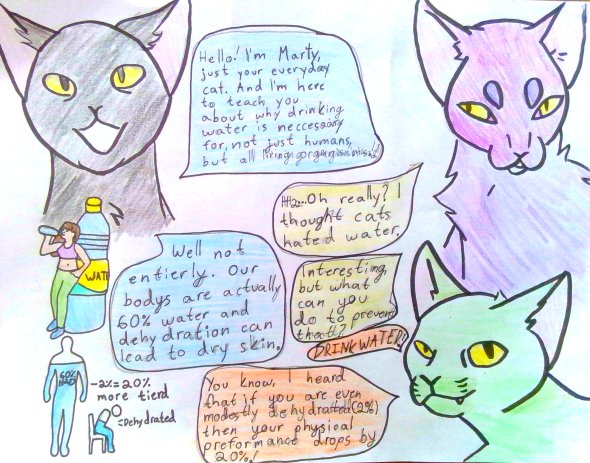 Hello! I'm Marty,
just your everyday
cat. And I'm here
to teach you
about why drinking
water is neccessary
for, not just humans,
but all living
Oh really? I
thought cats
hated water.
Well not
entierly. Our
bodys are actually
60% water and
dehydration can
lead to dry skin.
Interesting,
but what
can you
do to prevent
that?
DRINK WATER!
WATE
60%
H2O
-2%=20%
more tierd
Dehydrated
You know, I heard
that if you are even
modestly dehydrated(2%)
then your physical
preformance drops by
20%!